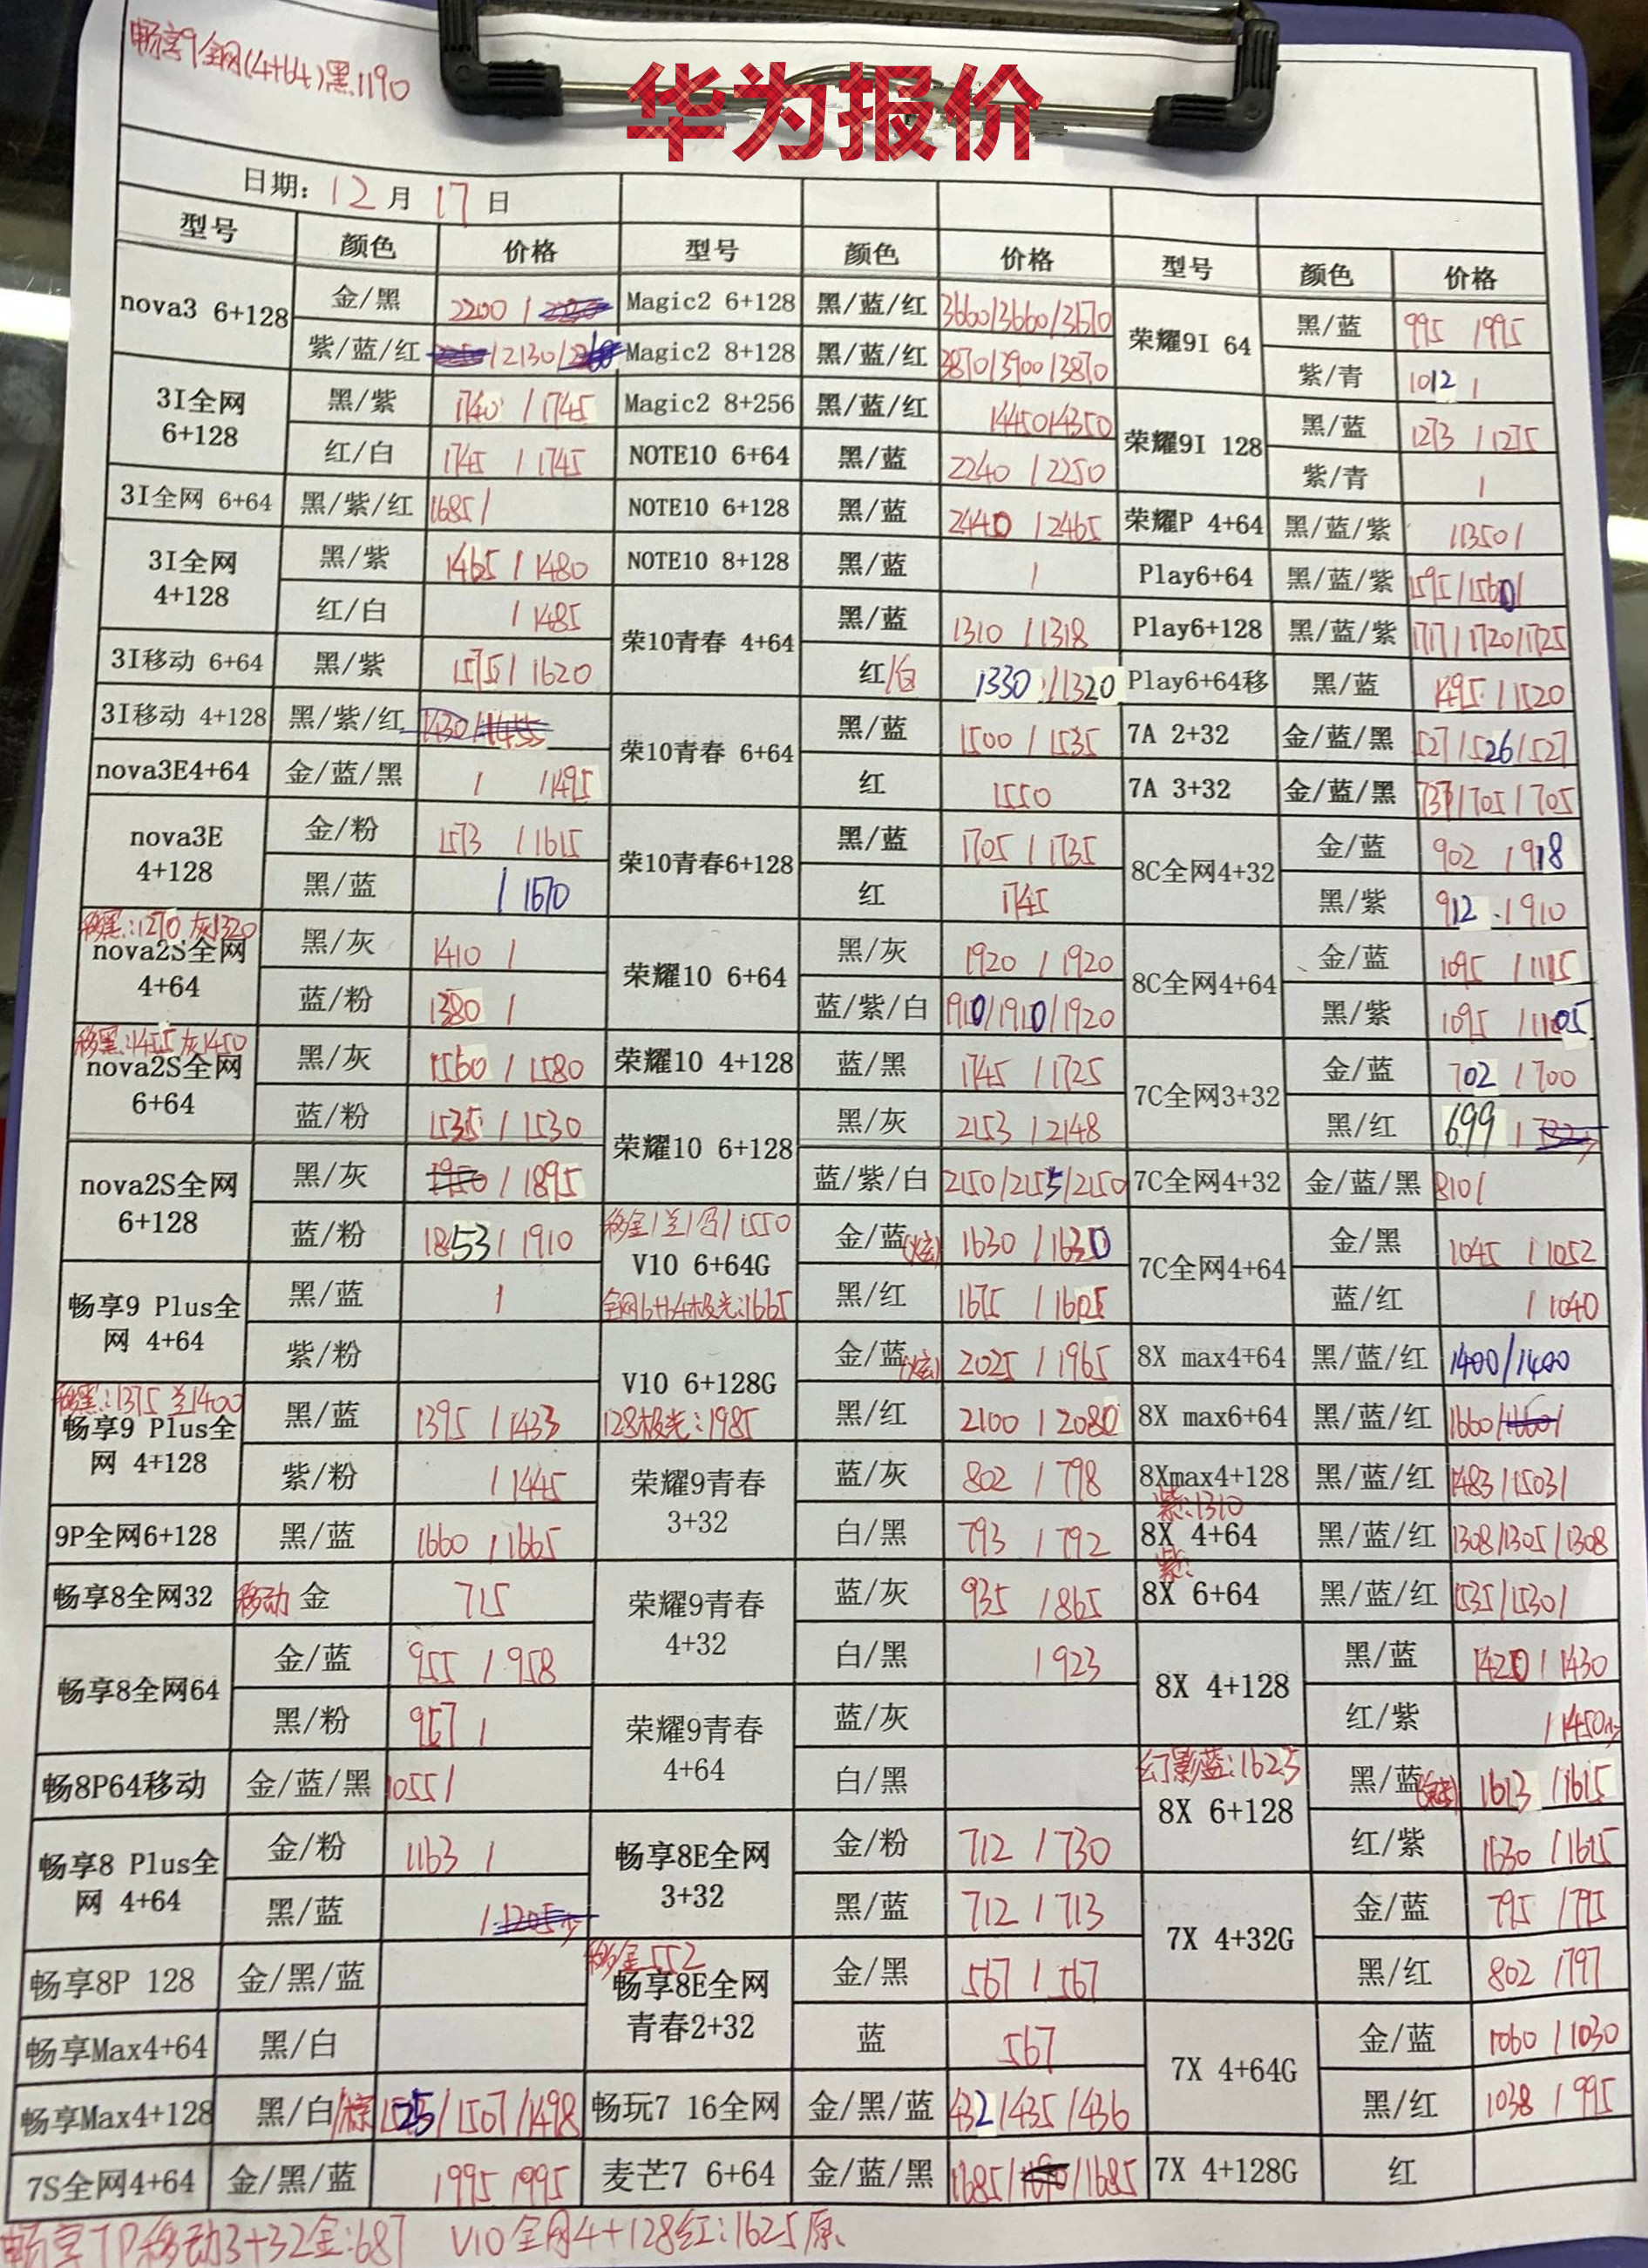 畅享9全网(4+64)黑1190
华为报价
日期: 12月 17日
型号 颜色 价格 型号 颜色 价格 型号 颜色 价格
nova3 6+128 金/黑 2200 / Magic2 6+128 黑/蓝/红 3660/3660/3670 荣耀9I 64 黑/蓝 995 /995
紫/蓝/红 /2130/ Magic2 8+128 黑/蓝/红 3870/3900/3870 紫/青 1012 /
3I全网 6+128 黑/紫 1740 /1745 Magic2 8+256 黑/蓝/红 /4450/4350 荣耀9I 128 黑/蓝 1273 /1275
红/白 1745 /1745 NOTE10 6+64 黑/蓝 2240 /2250 紫/青 /
3I全网 6+64 黑/紫/红 1685/ NOTE10 6+128 黑/蓝 2440 /2465 荣耀P 4+64 黑/蓝/紫 /1350/
3I全网 4+128 黑/紫 1465 /1480 NOTE10 8+128 黑/蓝 / Play6+64 黑/蓝/紫 1595/1560/
红/白 /1485 荣10青春 4+64 黑/蓝 1310 /1318 Play6+128 黑/蓝/紫 1717/1720/1725
3I移动 6+64 黑/紫 1575/1620 红/白 1330 /1320 Play6+64移 黑/蓝 1495 /1520
3I移动 4+128 黑/紫/红 1430/1455 荣10青春 6+64 黑/蓝 1500 /1535 7A 2+32 金/蓝/黑 527/526/527
nova3E4+64 金/蓝/黑 / /1495 红 1550 7A 3+32 金/蓝/黑 737/705/705
nova3E 4+128 金/粉 1573 /1615 荣10青春6+128 黑/蓝 1705 /1735 8C全网4+32 金/蓝 902 /918
黑/蓝 /1670 红 1745 黑/紫 912 /910
移黑:1270 灰1320
nova2S全网 4+64 黑/灰 1410 / 荣耀10 6+64 黑/灰 1920 /1920 8C全网4+64 金/蓝 1095 /1115
蓝/粉 1380 / 蓝/紫/白 1910/1910/1920 黑/紫 1095 /1105
移黑:1455 灰1450
nova2S全网 6+64 黑/灰 1560 /1580 荣耀10 4+128 蓝/黑 1745 /1725 7C全网3+32 金/蓝 702 /700
蓝/粉 1535 /1530 荣耀10 6+128 黑/灰 2153 /2148 黑/红 699 /
nova2S全网 6+128 黑/灰 1950 /1895 蓝/紫/白 2150/2155/2150 7C全网4+32 金/蓝/黑 810/
蓝/粉 1853 /1910 移金/兰/红/1550 V10 6+64G 金/蓝(炫) 1630 /1630 7C全网4+64 金/黑 1045 /1052
畅享9 Plus全网 4+64 黑/蓝 / 全网6+64极光:1665 黑/红 1675 /1605 蓝/红 /1040
紫/粉 V10 6+128G 金/蓝(炫) 2025 /1965 8X max4+64 黑/蓝/红 1400/1400
移黑:1375 兰1400
畅享9 Plus全网 4+128 黑/蓝 1395 /1433 128极光:1985 黑/红 2100 /2080 8X max6+64 黑/蓝/红 1660/1660/
紫/粉 /1445 荣耀9青春 3+32 蓝/灰 802 /798 8Xmax4+128 黑/蓝/红 1483/1503/
9P全网6+128 黑/蓝 1660 /1665 白/黑 793 /792 紫:1310 8X 4+64 黑/蓝/红 1308/1305/1308
畅享8全网32 移动 金 715 荣耀9青春 4+32 蓝/灰 935 /865 紫: 8X 6+64 黑/蓝/红 1535/1530/
畅享8全网64 金/蓝 955 /958 白/黑 /923 8X 4+128 黑/蓝 1420 /1430
黑/粉 967 / 荣耀9青春 4+64 蓝/灰 红/紫 /1450少
畅8P64移动 金/蓝/黑 1055/ 白/黑 幻影蓝:1625 8X 6+128 黑/蓝 1613 /1615
畅享8 Plus全网 4+64 金/粉 1163 / 畅享8E全网 3+32 金/粉 712 /730 红/紫 1630 /1615
黑/蓝 /1205少 黑/蓝 712 /713 7X 4+32G 金/蓝 795 /795
畅享8P 128 金/黑/蓝 移金552 畅享8E全网 青春2+32 金/黑 567 /567 黑/红 802 /797
畅享Max4+64 黑/白 蓝 567 7X 4+64G 金/蓝 1060 /1030
畅享Max4+128 黑/白/棕 1525/1507/1498 畅玩7 16全网 金/黑/蓝 432/435/436 黑/红 1038 /995
7S全网4+64 金/黑/蓝 1995 /995 麦芒7 6+64 金/蓝/黑 1685/1690/1685 7X 4+128G 红
畅享7P移动3+32金:687 V10全网4+128红:1625原